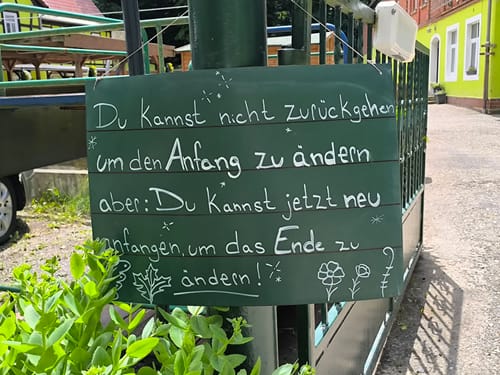 Du kannst nicht zurückgehen
um den Anfang zu ändern
aber: Du kannst jetzt neu
anfangen, um das Ende zu
ändern!